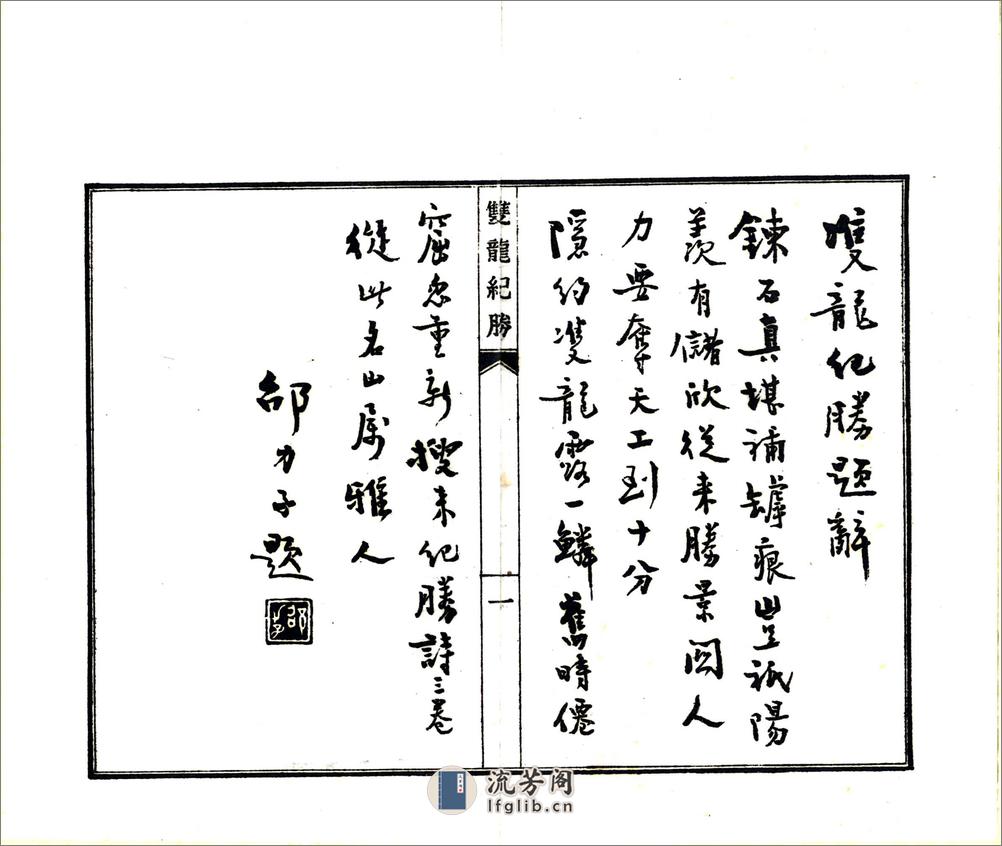 雙龍紀勝題辭
鍊石真堪補罅痕豈祇陽
羨有儲欣從來勝景關人
力要奪天工到十分
隱約雙龍露一鱗舊時僊
雙龍紀勝
一
窟忽重新搜來紀勝詩三卷
從此名山屬雅人
邵力子題
流芳阁
lfglib.cn